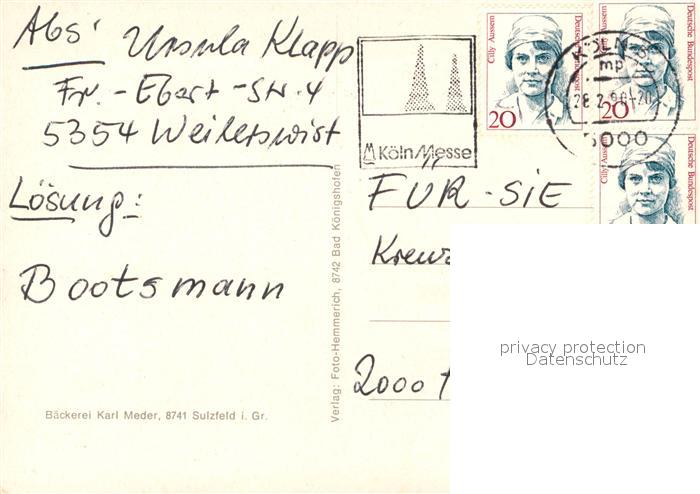 Abs' Ursula Klapp
Fr. - Ebert - Str. 4
5354 Weilerswist
Lösung:
Bootsmann
Bäckerei Karl Meder, 8741 Sulzfeld i. Gr.
Verlag: Foto-Hemmerich, 8742 Bad Königshofen
Köln/Messe
Cilly Aussem
20
Deutsche Bundespost
Deutsche Bundespost
20
Cilly Aussem
Deutsche Bundespost
KÖLN
mp
28.2.90-20
5000
FÜR - SIE
2000
privacy protection
Datenschutz